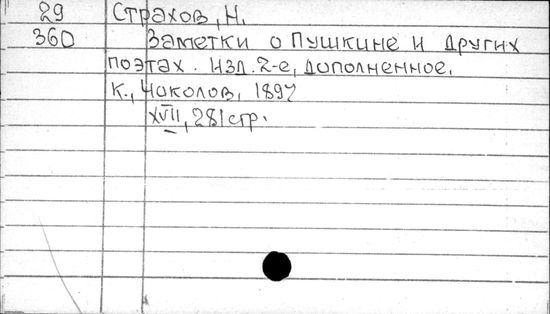 29 Страхов, Н.
360 Заметки о Пушкине и других
поэтах. Изд. 2-е, дополненное.
К., Чоколов, 1897
XVII, 281 стр.